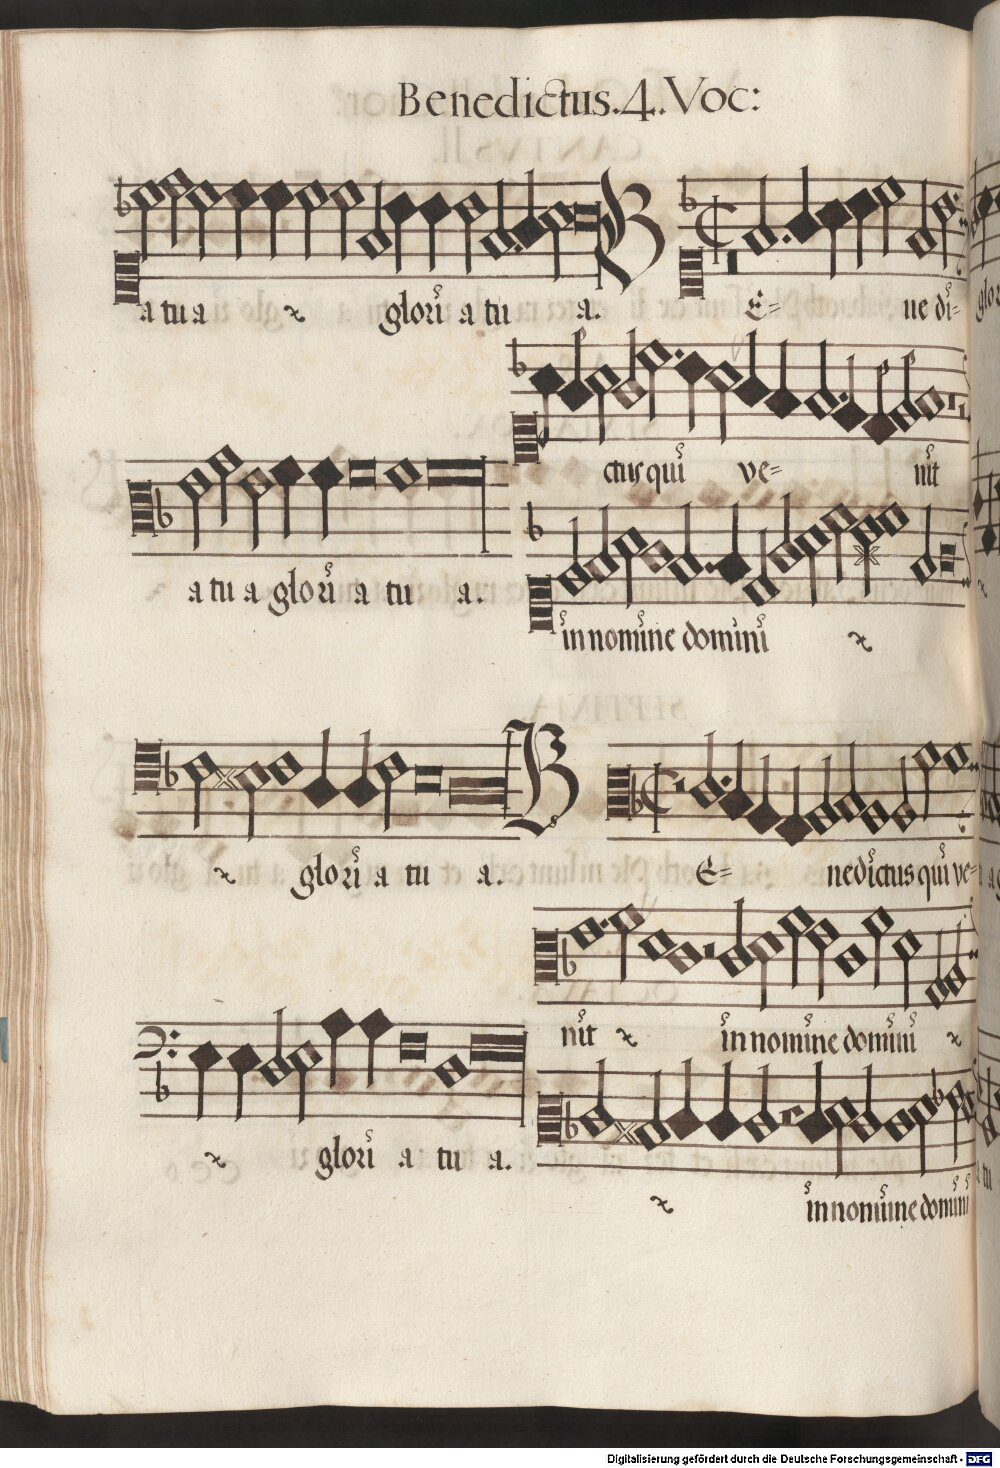 Benedictus.4.Voc:
a tu a glori a tu a.
B E= ne di=
ctus qui ve= nit
a tu a glori a tu a.
in nomine domini
glori a tu a.
B E= nedictus qui ve=
nit in nomine domini
glori a tu a.
in nomine domini
Digitalisierung gefördert durch die Deutsche Forschungsgemeinschaft - DFG